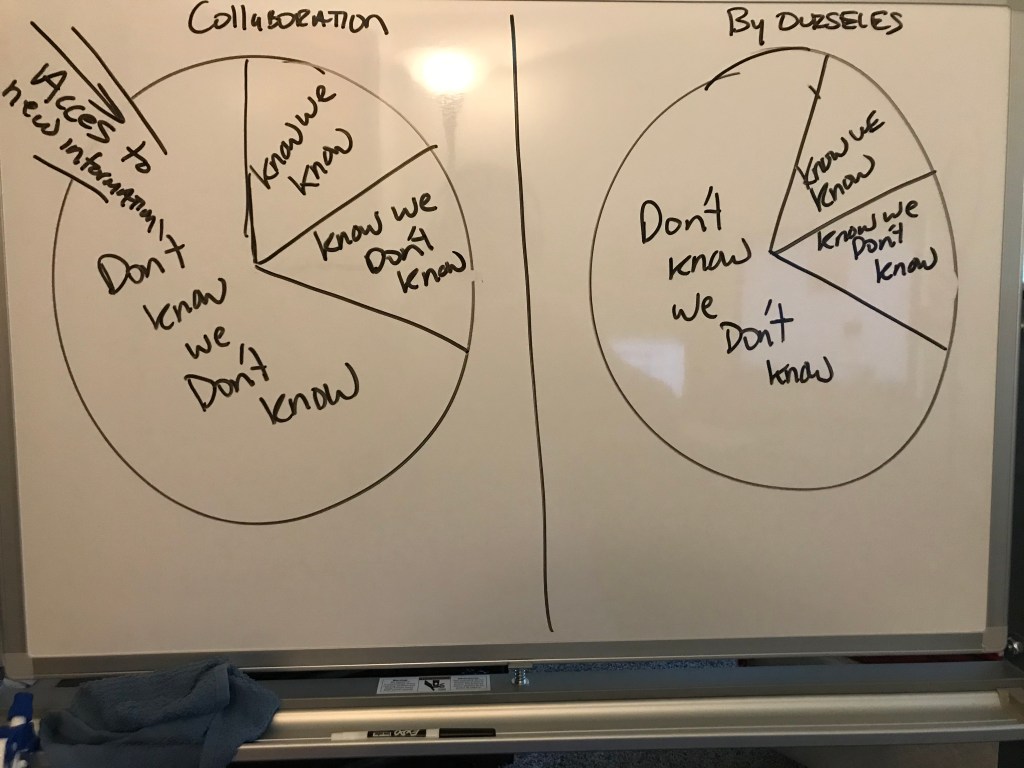 Collaboration
Acces to
new information
know we
know
know we
Don't
know
Don't
know
we
Don't
know
By Ourseles
know we
know
know we
Don't
know
Don't
know
we
Don't
know
EXPO